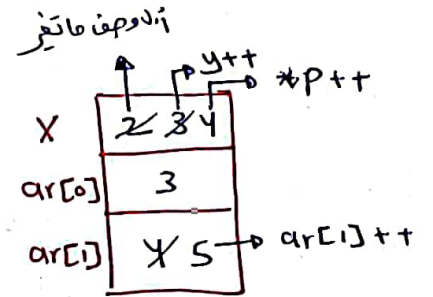 أول وصف ما تغير
y++
*p++
X 2 3 4
ar[0] 3
ar[1] 4 5 ar[1]++